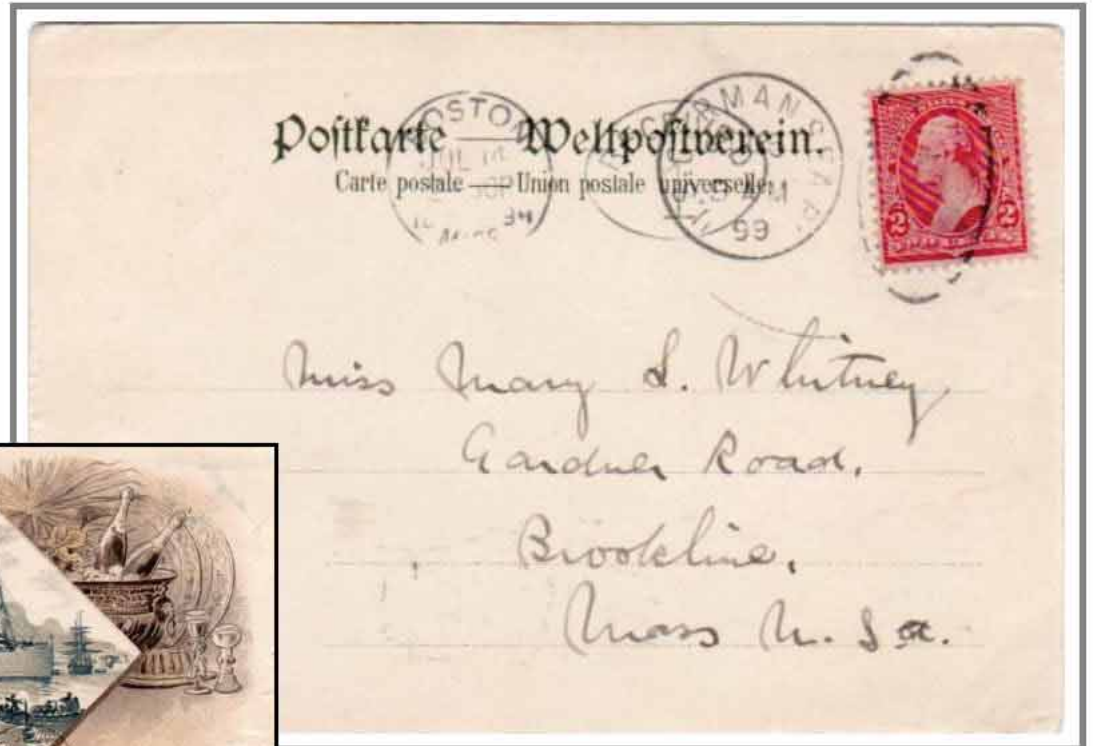 Postkarte — Weltpostverein.
Carte postale — Union postale universelle.
BOSTON
JUL 14
99
2 2
Miss Mary S. Whitney
Gardner Road.
Brookline.
Mass U. S a.